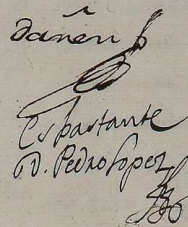 dañen
Es bastante
D. Pedro Lopez